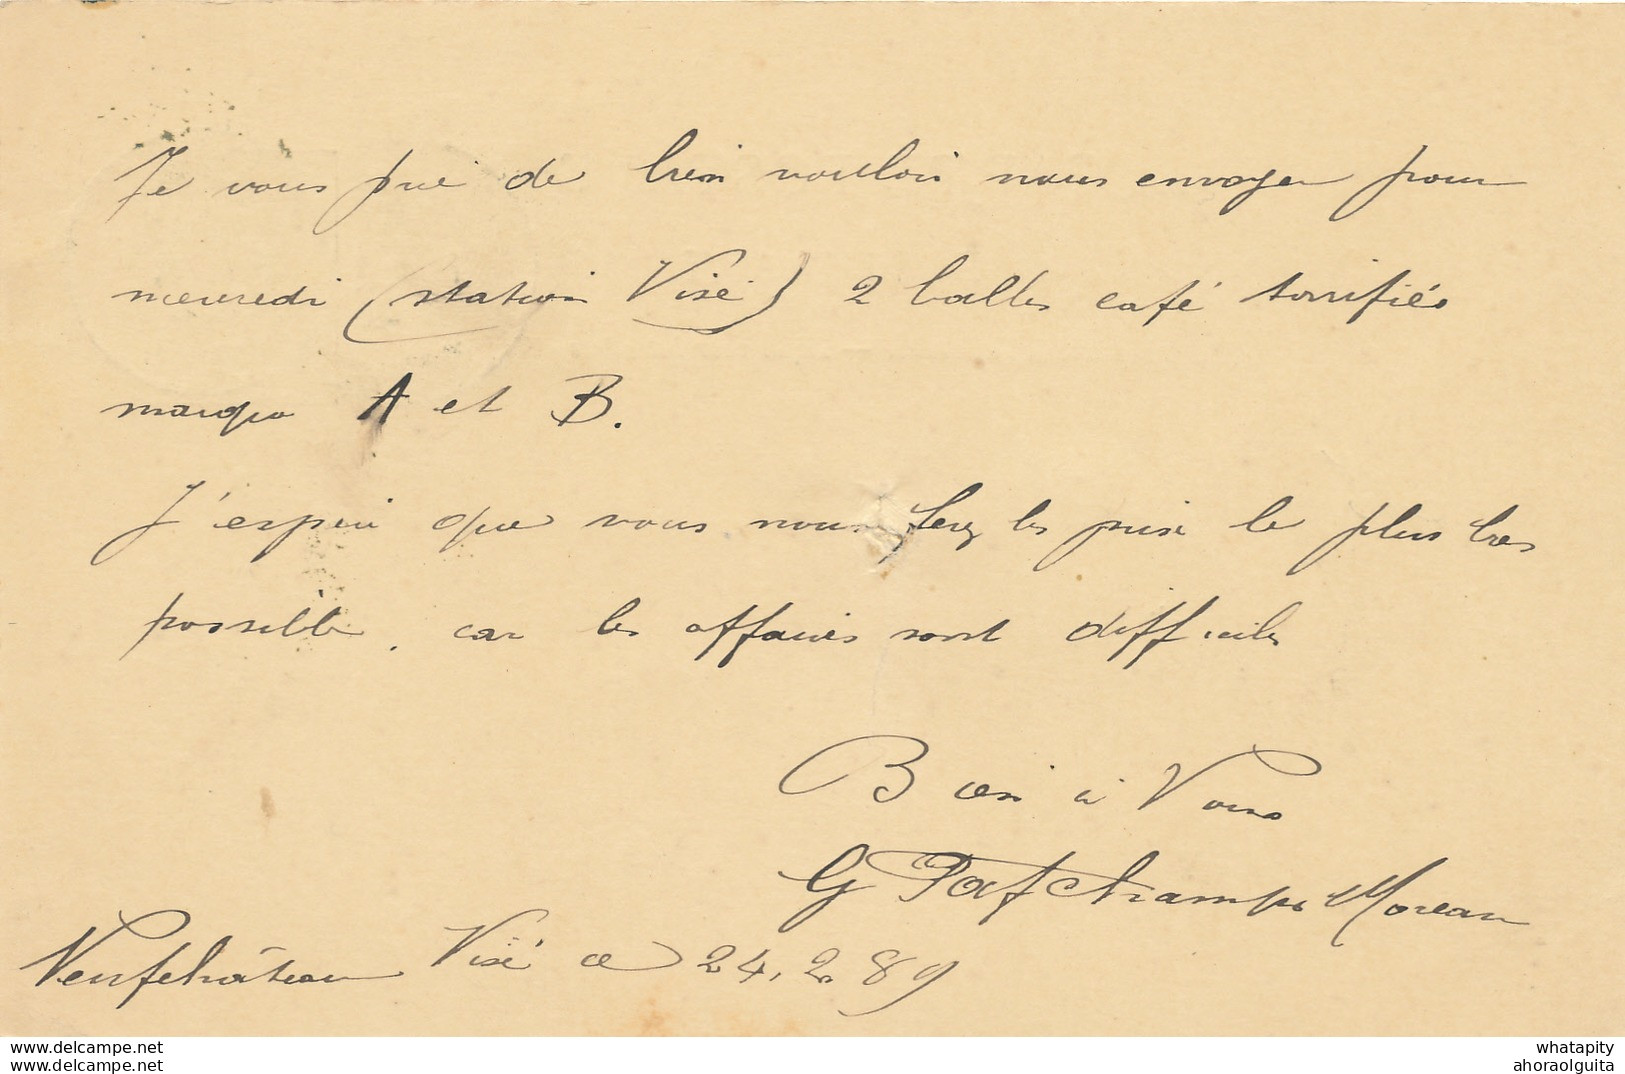 Je vous prie de bien vouloir nous envoyer pour
mercredi (station Visé) 2 balles café torrifiés
marque A et B.
J'espère que vous nous ferez les prix le plus bas
possible, car les affaires sont difficiles
Bien à Vous
G Moreau
Neufchâteau Visé ce 24.2.89
www.delcampe.net
www.delcampe.net
whatapity
ahoraolguita